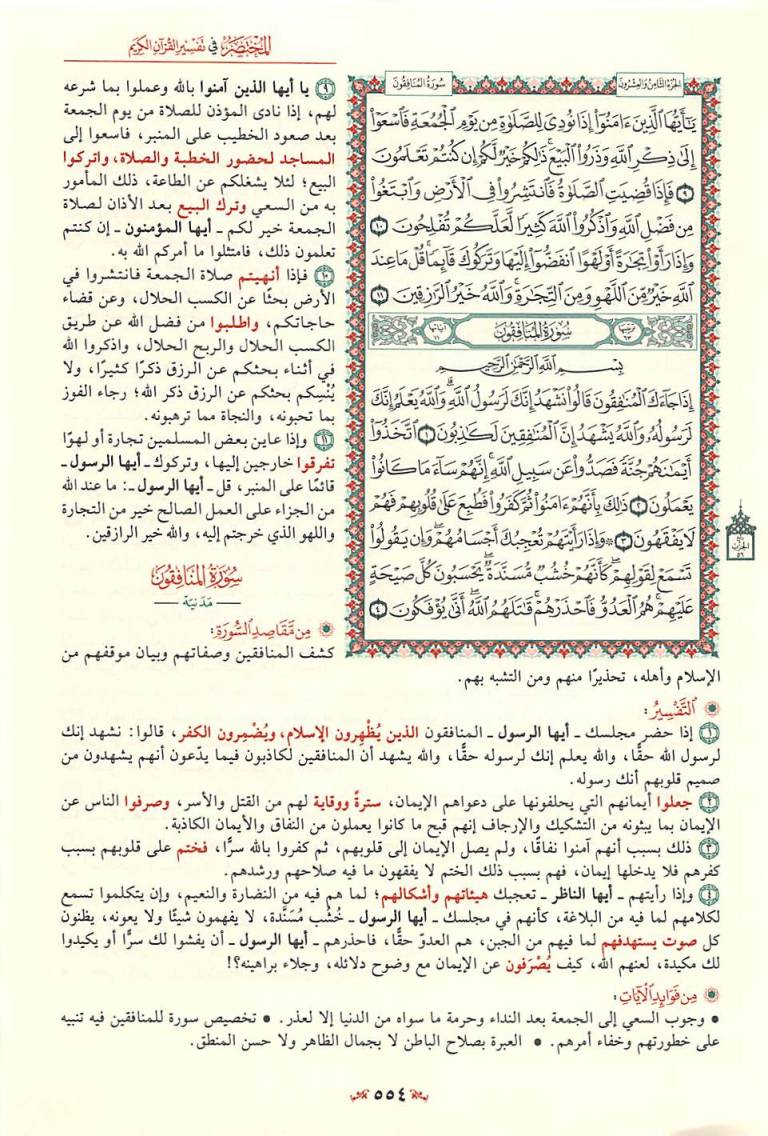 المختصر في تفسير القرآن الكريم
الجزء الثامن والعشرون
سورة المنافقون
يَٰٓأَيُّهَا ٱلَّذِينَ ءَامَنُوٓاْ إِذَا نُودِيَ لِلصَّلَوٰةِ مِن يَوۡمِ ٱلۡجُمُعَةِ فَٱسۡعَوۡاْ
إِلَىٰ ذِكۡرِ ٱللَّهِ وَذَرُواْ ٱلۡبَيۡعَۚ ذَٰلِكُمۡ خَيۡرٞ لَّكُمۡ إِن كُنتُمۡ تَعۡلَمُونَ
٩ فَإِذَا قُضِيَتِ ٱلصَّلَوٰةُ فَٱنتَشِرُواْ فِي ٱلۡأَرۡضِ وَٱبۡتَغُواْ
مِن فَضۡلِ ٱللَّهِ وَٱذۡكُرُواْ ٱللَّهَ كَثِيرٗا لَّعَلَّكُمۡ تُفۡلِحُونَ ١٠
وَإِذَا رَأَوۡاْ تِجَٰرَةً أَوۡ لَهۡوًا ٱنفَضُّوٓاْ إِلَيۡهَا وَتَرَكُوكَ قَآئِمٗاۚ قُلۡ مَا عِندَ
ٱللَّهِ خَيۡرٞ مِّنَ ٱللَّهۡوِ وَمِنَ ٱلتِّجَٰرَةِۚ وَٱللَّهُ خَيۡرُ ٱلرَّٰزِقِينَ ١١
ترتيبها ٦٣ سورة المنافقون آياتها ١١
بِسۡمِ ٱللَّهِ ٱلرَّحۡمَٰنِ ٱلرَّحِيمِ
إِذَا جَآءَكَ ٱلۡمُنَٰفِقُونَ قَالُواْ نَشۡهَدُ إِنَّكَ لَرَسُولُ ٱللَّهِۗ وَٱللَّهُ يَعۡلَمُ إِنَّكَ
لَرَسُولُهُۥ وَٱللَّهُ يَشۡهَدُ إِنَّ ٱلۡمُنَٰفِقِينَ لَكَٰذِبُونَ ١ ٱتَّخَذُوٓاْ
أَيۡمَٰنَهُمۡ جُنَّةٗ فَصَدُّواْ عَن سَبِيلِ ٱللَّهِۚ إِنَّهُمۡ سَآءَ مَا كَانُواْ
يَعۡمَلُونَ ٢ ذَٰلِكَ بِأَنَّهُمۡ ءَامَنُواْ ثُمَّ كَفَرُواْ فَطُبِعَ عَلَىٰ قُلُوبِهِمۡ فَهُمۡ
لَا يَفۡقَهُونَ ٣ ۞ وَإِذَا رَأَيۡتَهُمۡ تُعۡجِبُكَ أَجۡسَامُهُمۡۖ وَإِن يَقُولُواْ
تَسۡمَعۡ لِقَوۡلِهِمۡۖ كَأَنَّهُمۡ خُشُبٞ مُّسَنَّدَةٞۖ يَحۡسَبُونَ كُلَّ صَيۡحَةٍ
عَلَيۡهِمۡۚ هُمُ ٱلۡعَدُوُّ فَٱحۡذَرۡهُمۡۚ قَٰتَلَهُمُ ٱللَّهُۖ أَنَّىٰ يُؤۡفَكُونَ ٤
٩ يا أيها الذين آمنوا بالله وعملوا بما شرعه
لهم، إذا نادى المؤذن للصلاة من يوم الجمعة
بعد صعود الخطيب على المنبر، فاسعوا إلى
المساجد لحضور الخطبة والصلاة، واتركوا
البيع؛ لئلا يشغلكم عن الطاعة، ذلك المأمور
به من السعي وترك البيع بعد الأذان لصلاة
الجمعة خير لكم ـ أيها المؤمنون ـ إن كنتم
تعلمون ذلك، فامتثلوا ما أمركم الله به.
١٠ فإذا أنهيتم صلاة الجمعة فانتشروا في
الأرض بحثًا عن الكسب الحلال، وعن قضاء
حاجاتكم، واطلبوا من فضل الله عن طريق
الكسب الحلال والربح الحلال، واذكروا الله
في أثناء بحثكم عن الرزق ذكرًا كثيرًا، ولا
يُنْسِكم بحثكم عن الرزق ذكر الله؛ رجاء الفوز
بما تحبونه، والنجاة مما ترهبونه.
١١ وإذا عاين بعض المسلمين تجارة أو لهوًا
تفرقوا خارجين إليها، وتركوك ـ أيها الرسول ـ
قائمًا على المنبر، قل ـ أيها الرسول ـ: ما عند الله
من الجزاء على العمل الصالح خير من التجارة
واللهو الذي خرجتم إليه، والله خير الرازقين.
سورة المنافقون
ـ مدنية ـ
من مقاصد السورة:
كشف المنافقين وصفاتهم وبيان موقفهم من
الإسلام وأهله، تحذيرًا منهم ومن التشبه بهم.
التفسير:
١ إذا حضر مجلسك ـ أيها الرسول ـ المنافقون الذين يُظْهِرون الإسلام، ويُضْمِرون الكفر، قالوا: نشهد إنك
لرسول الله حقًّا، والله يعلم إنك لرسوله حقًّا، والله يشهد أن المنافقين لكاذبون فيما يدّعون أنهم يشهدون من
صميم قلوبهم أنك رسوله.
٢ جعلوا أيمانهم التي يحلفونها على دعواهم الإيمان، سترةً ووقاية لهم من القتل والأسر، وصرفوا الناس عن
الإيمان بما يبثونه من التشكيك والإرجاف إنهم قبح ما كانوا يعملون من النفاق والأيمان الكاذبة.
٣ ذلك بسبب أنهم آمنوا نفاقًا، ولم يصل الإيمان إلى قلوبهم، ثم كفروا بالله سرًّا، فختم على قلوبهم بسبب
كفرهم فلا يدخلها إيمان، فهم بسبب ذلك الختم لا يفقهون ما فيه صلاحهم ورشدهم.
٤ وإذا رأيتهم ـ أيها الناظر ـ تعجبك هيئاتهم وأشكالهم؛ لما هم فيه من النضارة والنعيم، وإن يتكلموا تسمع
لكلامهم لما فيه من البلاغة، كأنهم في مجلسك ـ أيها الرسول ـ خُشُب مُسَنَّدة، لا يفهمون شيئًا ولا يعونه، يظنون
كل صوت يستهدفهم لما فيهم من الجبن، هم العدوّ حقًّا، فاحذرهم ـ أيها الرسول ـ أن يفشوا لك سرًّا أو يكيدوا
لك مكيدة، لعنهم الله، كيف يُصْرَفون عن الإيمان مع وضوح دلائله، وجلاء براهينه؟!
من فوائد الآيات:
• وجوب السعي إلى الجمعة بعد النداء وحرمة ما سواه من الدنيا إلا لعذر. • تخصيص سورة للمنافقين فيه تنبيه
على خطورتهم وخفاء أمرهم. • العبرة بصلاح الباطن لا بجمال الظاهر ولا حسن المنطق.
٥٥٤